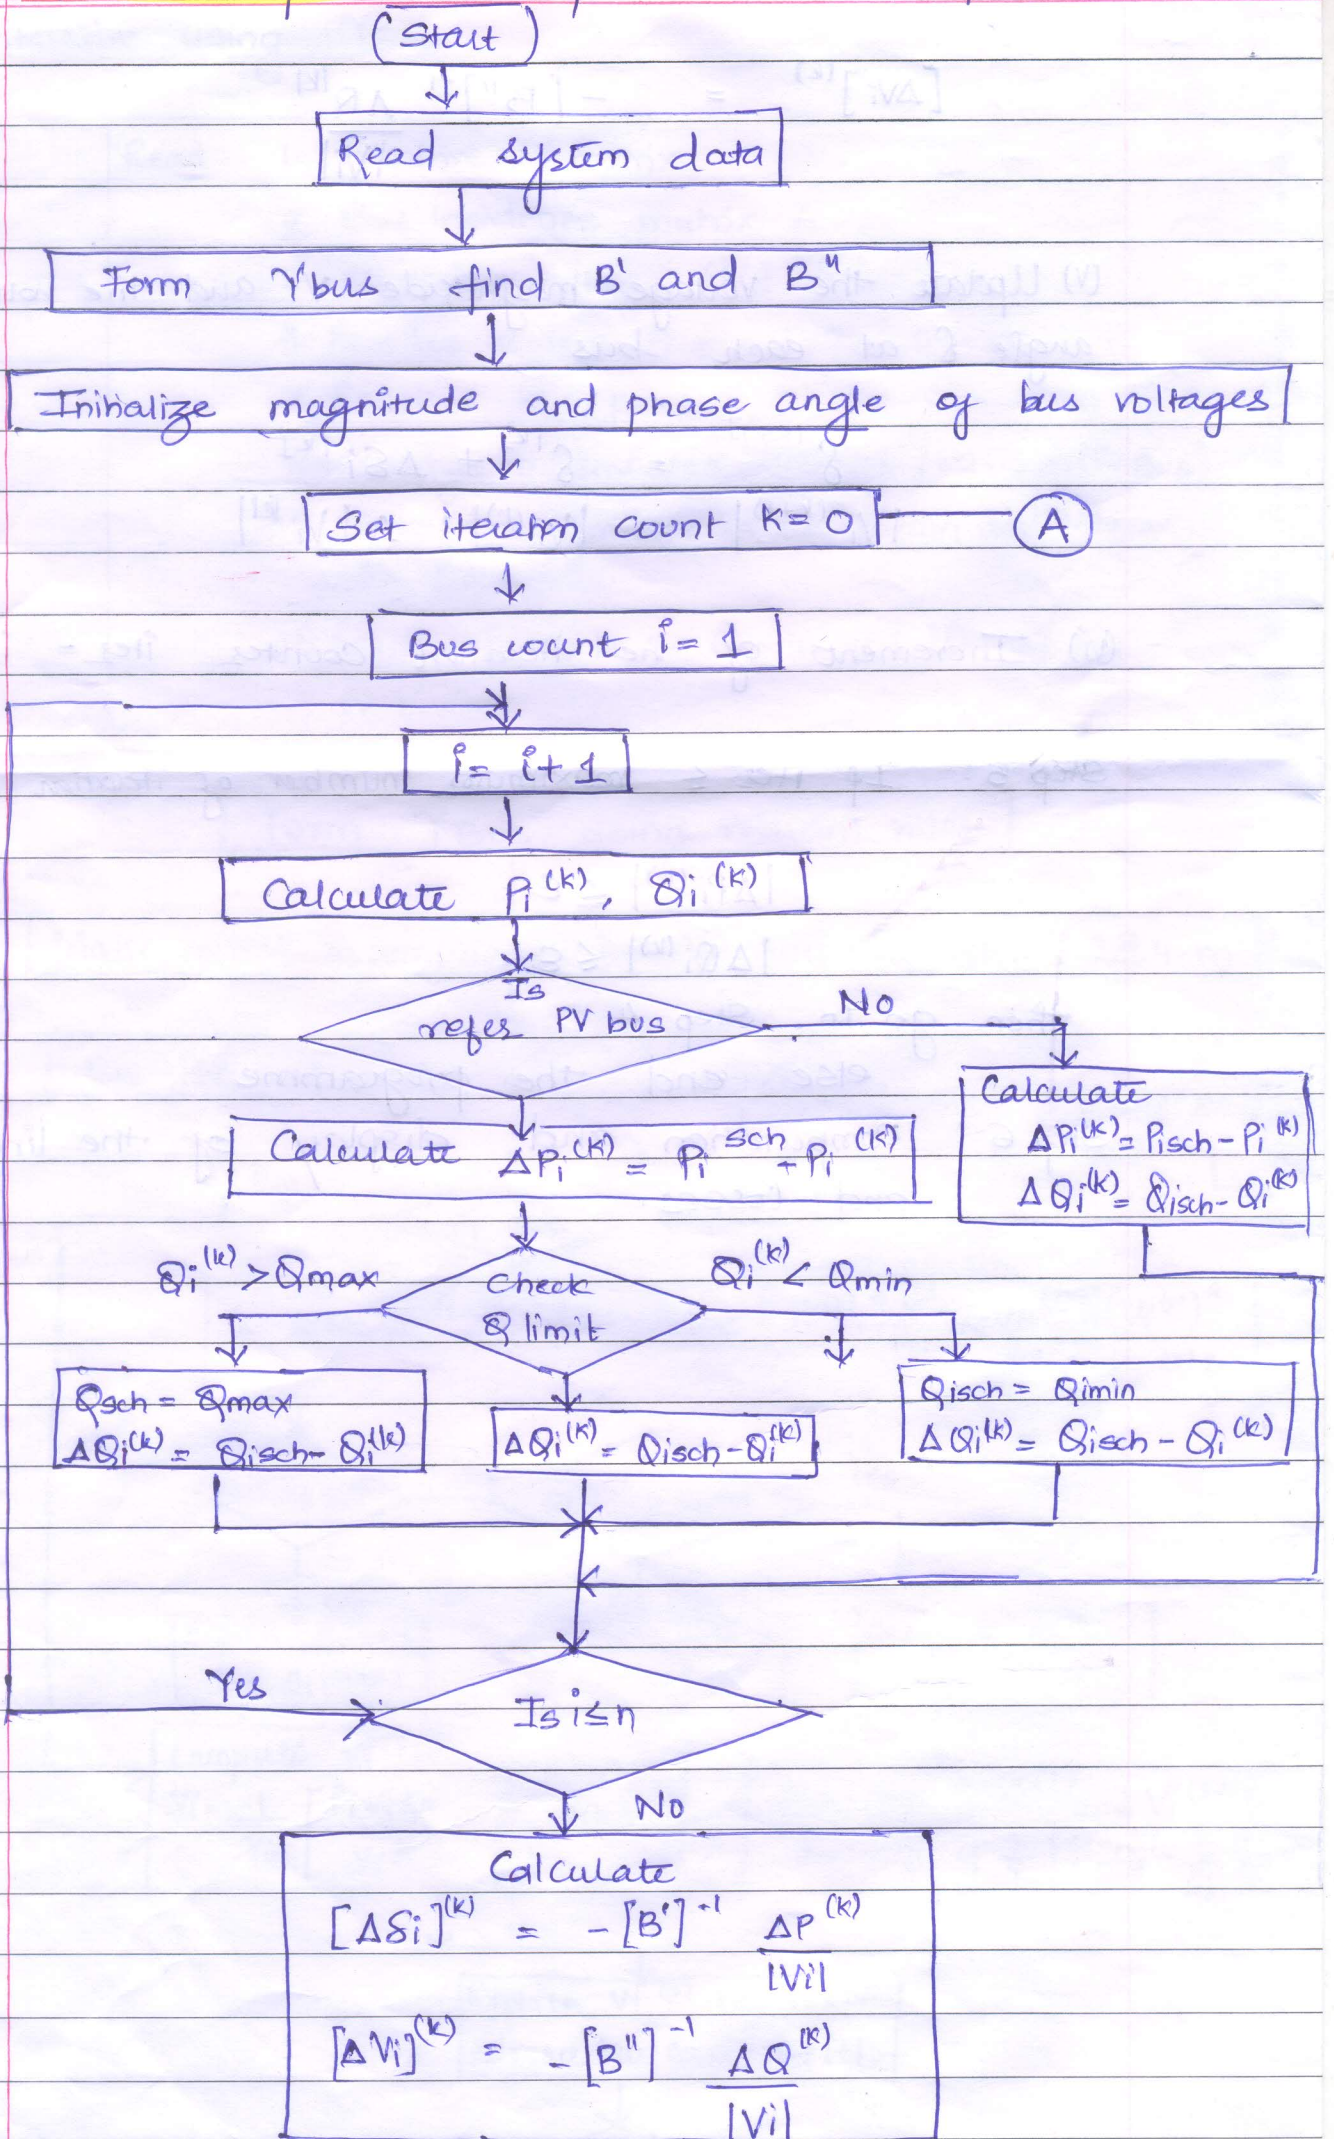 Start
Read system data
Form Ybus find B' and B"
Initialize magnitude and phase angle of bus voltages
Set iteration count K = 0
A
Bus count i = 1
i = i + 1
Calculate Pi^(k), Qi^(k)
Is
refer PV bus
No
Calculate ΔPi^(k) = Pi^sch - Pi^(k)
Calculate
ΔPi^(k) = Pisch - Pi^(k)
ΔQi^(k) = Qisch - Qi^(k)
Qi^(k) > Qmax
Check
Q limit
Qi^(k) < Qmin
Qsch = Qmax
ΔQi^(k) = Qisch - Qi^(k)
ΔQi^(k) = Qisch - Qi^(k)
Qisch = Qimin
ΔQi^(k) = Qisch - Qi^(k)
Yes
Is i ≤ n
No
Calculate
[Δδi]^(k) = -[B']^-1 ΔP^(k) / |Vi|
[ΔVi]^(k) = -[B"]^-1 ΔQ^(k) / |Vi|